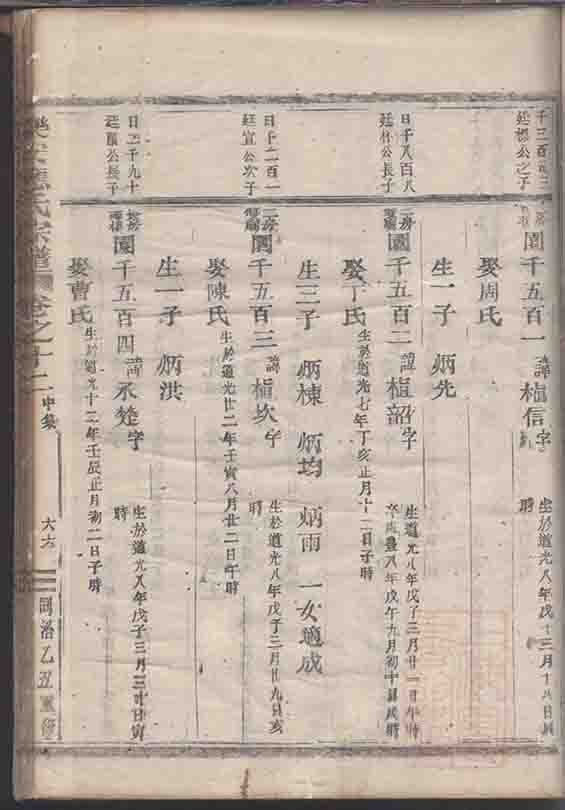 千三百
廷標公之子
園千五百一 諱楦信 字
生於道光八年戊子三月十八日
時
娶周氏
生一子 炳先
日千八百八
廷林公長子
二房
園千五百二 諱楦韶 字
生道光八年戊子三月廿一日午時
卒咸豐八年戊午九月初十日戌時
娶丁氏 生於道光七年丁亥正月十二日子時
生三子 炳棟 炳均 炳雨 一女適成
日千二百一
廷宣公次子
二房
園千五百三 諱楦坎 字
生於道光八年戊子三月廿九日亥
時
娶陳氏 生於道光廿二年壬寅八月廿二日午時
生一子 炳洪
日二千九十
廷公長子
園千五百四 諱承楚 字
生於道光八年戊子三月三十日寅
時
娶曹氏 生於道光十二年壬辰正月初二日子時
樂安應氏宗譜 卷之十二 中集 六六 同治乙丑重修